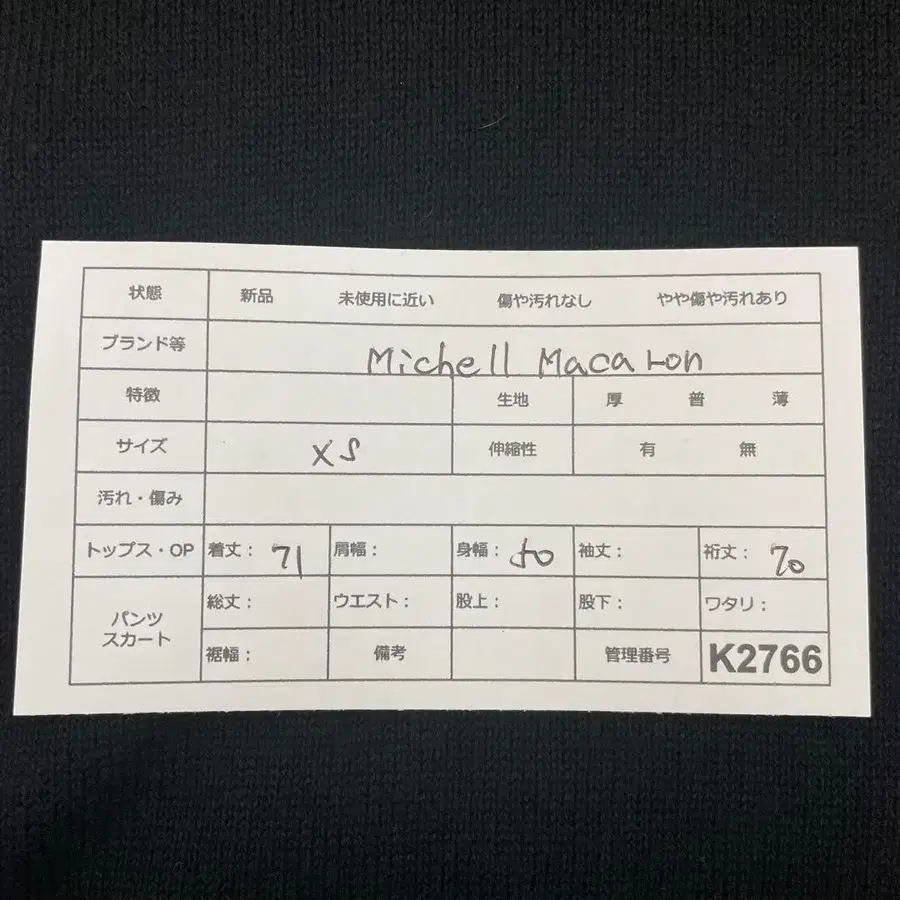 状態 新品 未使用に近い 傷や汚れなし やや傷や汚れあり
ブランド等 Michell Macaron
特徴 生地 厚 普 薄
サイズ XS 伸縮性 有 無
汚れ・傷み
トップス・OP 着丈： 71 肩幅： 身幅： 50 袖丈： 裄丈： 70
パンツ スカート 総丈： ウエスト： 股上： 股下： ワタリ：
裾幅： 備考 管理番号 K2766